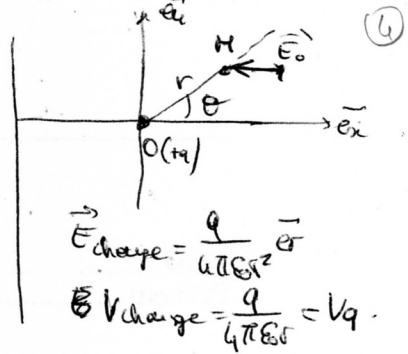 ④
e⃗y
M
E⃗₀
r
θ
e⃗x
O(+q)
E⃗charge = q/4πε₀r² e⃗r
Vcharge = q/4πε₀r = Vq.